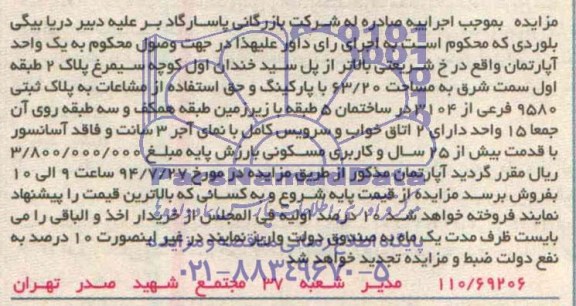 مزایده بموجب اجراییه صادره له شرکت بازرگانی پاسارگاد بر علیه دبیر دریا بیگی
بلوردی که محکوم است به اجرای رای داور علیهذا در جهت وصول محکوم به یک واحد
آپارتمان واقع در خ شریعتی بالاتر از پل سید خندان اول کوچه سیمرغ پلاک ۲ طبقه
اول سمت شرق به مساحت ۶۳/۲۰ با پارکینگ و حق استفاده از مشاعات به پلاک ثبتی
۹۵۸۰ فرعی از ۳۱۰۴ در ساختمان ۵ طبقه با زیرزمین طبقه همکف و سه طبقه روی آن
جمعا ۱۵ واحد دارای ۲ اتاق خواب و سرویس کامل با نمای آجر ۳ سانت و فاقد آسانسور
با قدمت بیش از ۲۵ سال و کاربری مسکونی باارزش پایه مبلغ ۳/۸۰۰/۰۰۰/۰۰۰
ریال مقرر گردید آپارتمان مذکور از طریق مزایده در مورخ ۹۴/۷/۲۷ ساعت ۹ الی ۱۰
بفروش برسد مزایده از قیمت پایه شروع و به کسانی که بالاترین قیمت را پیشنهاد
نمایند فروخته خواهد شد ده درصد اولیه فی المجلس از خریدار اخذ و الباقی را می
بایست ظرف مدت یک ماه به صندوق دولت واریز نمایند در غیر اینصورت ۱۰ درصد به
نفع دولت ضبط و مزایده تجدید خواهد شد
۱۱۰/۶۹۲۰۶ مدیر شعبه ۳۷ مجتمع شهید صدر تهران
ParsNamadData
۰۲۱-۸۸۳۴۹۶۷۰-۵